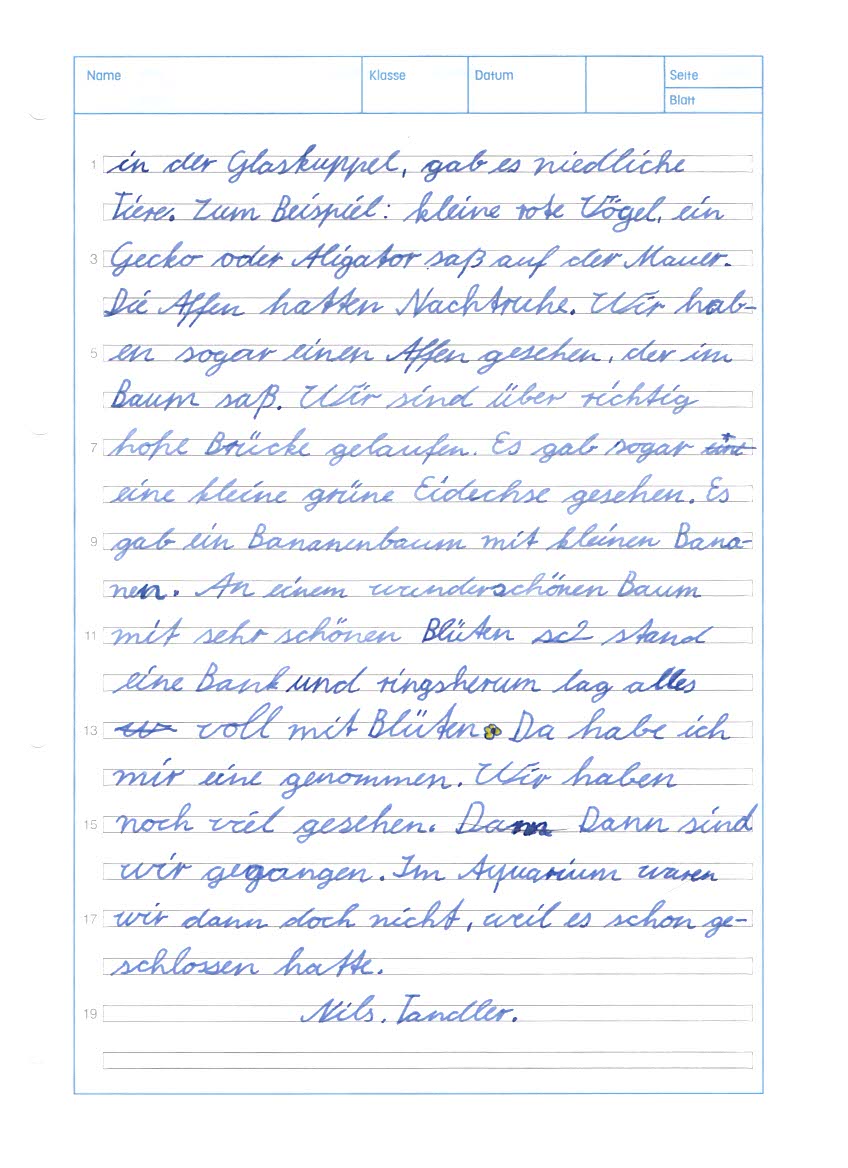 Name Klasse Datum Seite
Blatt
1 in der Glaskuppel, gab es niedliche
Tiere. Zum Beispiel: kleine rote Vögel, ein
3 Gecko oder Aligator saß auf der Mauer.
Die Affen hatten Nachtruhe. Wir hab-
5 en sogar einen Affen gesehen, der im
Baum saß. Wir sind über richtig
7 hohe Brücke gelaufen. Es gab sogar
eine kleine grüne Eidechse gesehen. Es
9 gab ein Bananenbaum mit kleinen Bana-
nen. An einem wunderschönen Baum
11 mit sehr schönen Blüten stand
eine Bank und ringsherum lag alles
13 voll mit Blüten. Da habe ich
mir eine genommen. Wir haben
15 noch viel gesehen. Dann Dann sind
wir gegangen. Im Aquarium waren
17 wir dann doch nicht, weil es schon ge-
schlossen hatte.
19 Nils. Tandler.